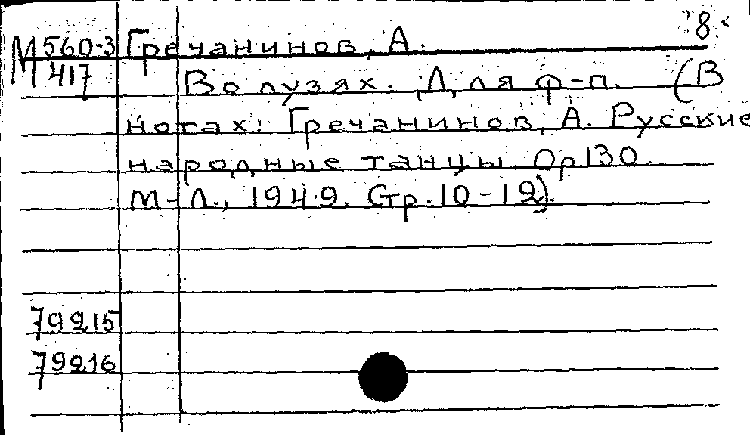 "8"
М 560-3 Гречанинов, А.
417 Во лузях. Для ф-п. (В
нотах: Гречанинов, А. Русские
народные танцы. Ор 130.
М-Л., 1949. Стр. 10-12).
79215
79216